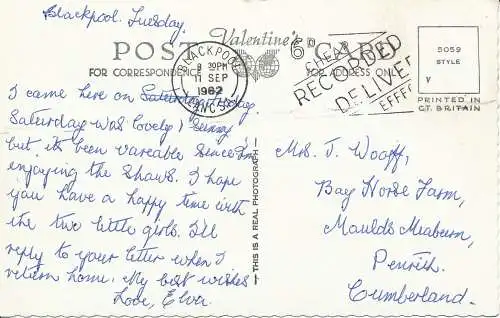 Blackpool. Tuesday.
POST CARD
Valentine's
FOR CORRESPONDENCE
FOR ADDRESS ONLY
BLACKPOOL
8 30PM
11 SEP
1962
LANCS
6D
CHEAP
RECORDED
DELIVER
EFFE
5059
STYLE
V
PRINTED IN
GT. BRITAIN
I came here on Saturday
Saturday was lovely & sunny
but it's been variable since. I'm
enjoying the Shows. I hope
you have a happy time with
the two little girls. I'll
reply to your letter when I
return home. My best wishes
Love, Elva.
THIS IS A REAL PHOTOGRAPH
Mrs. J. Wooff,
Bay Horse Farm,
Maulds Meaburn,
Penrith.
Cumberland.